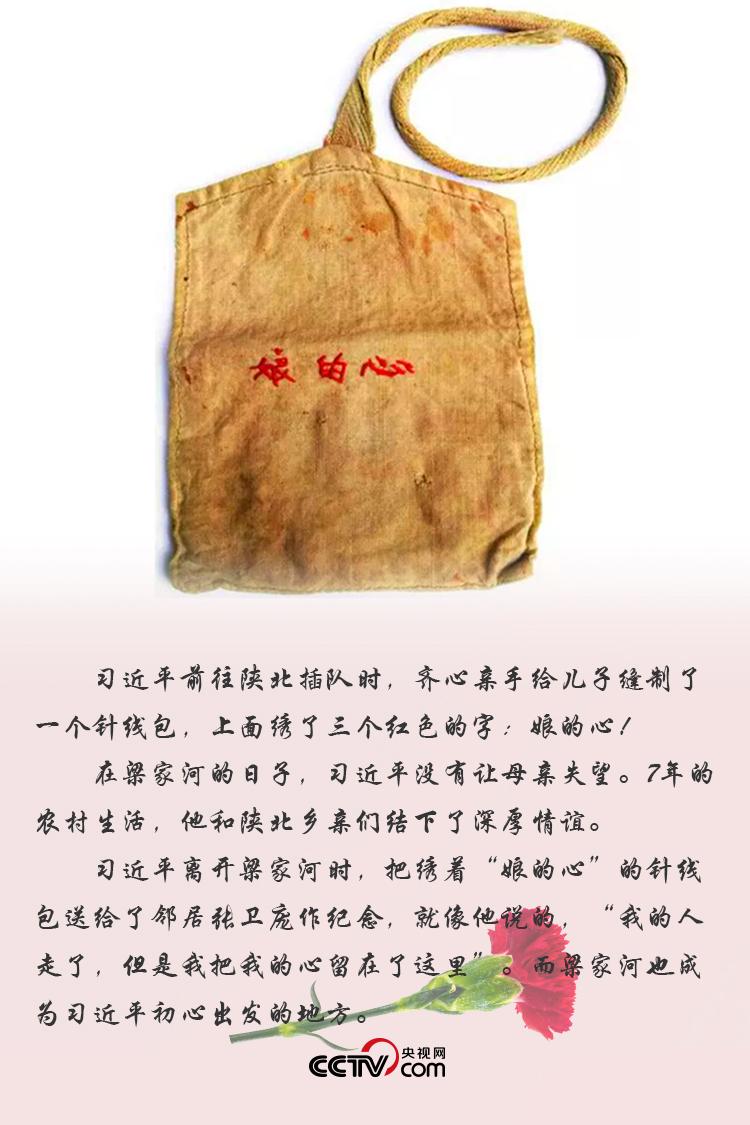 娘的心
习近平前往陕北插队时，齐心亲手给儿子缝制了
一个针线包，上面绣了三个红色的字：娘的心！
在梁家河的日子，习近平没有让母亲失望。7年的
农村生活，他和陕北乡亲们结下了深厚情谊。
习近平离开梁家河时，把绣着“娘的心”的针线
包送给了邻居张卫庞作纪念，就像他说的，“我的人
走了，但是我把我的心留在了这里”。而梁家河也成
为习近平初心出发的地方。
CCTV 央视网
com